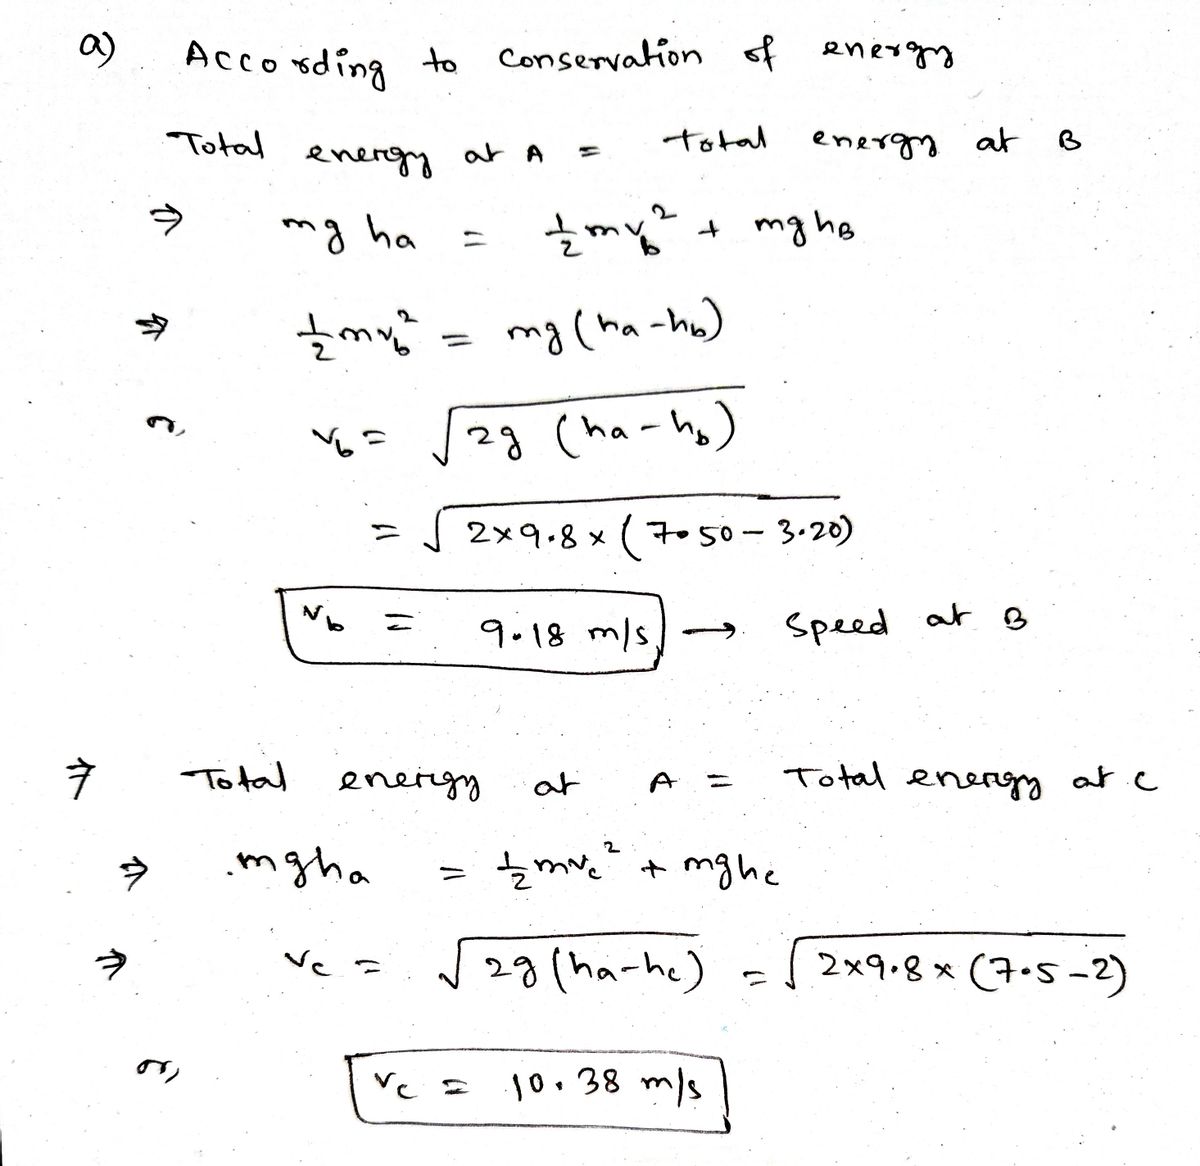 a) According to conservation of energy
Total energy at A = total energy at B
⇒ mg ha = 1/2 mv_b^2 + mg h_B
⇒ 1/2 mv_b^2 = mg (ha - h_b)
or, v_b = √(2g (ha - h_b))
= √(2×9.8×(7.50 - 3.20))
v_b = 9.18 m/s → speed at B
⇒ Total energy at A = Total energy at c
⇒ mgha = 1/2 mv_c^2 + mghc
⇒ v_c = √(2g(ha-hc)) = √(2×9.8×(7.5-2))
or, v_c = 10.38 m/s